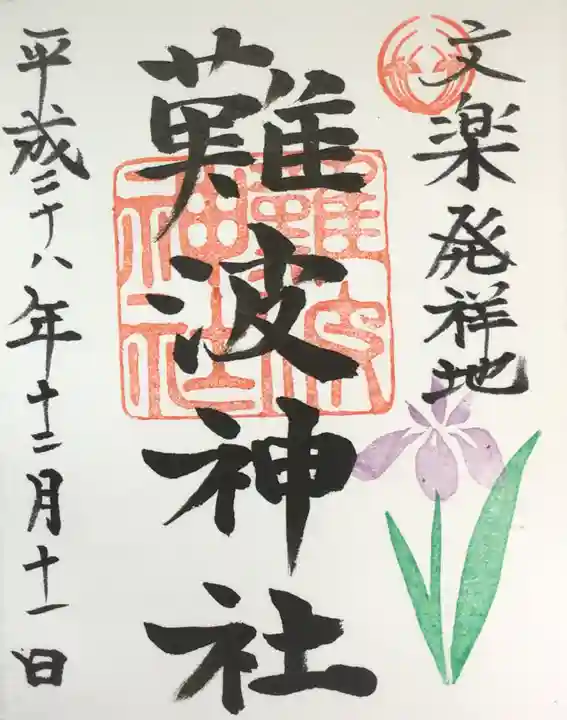 文楽発祥地
難波神社
難波神社
平成二十八年十二月十一日